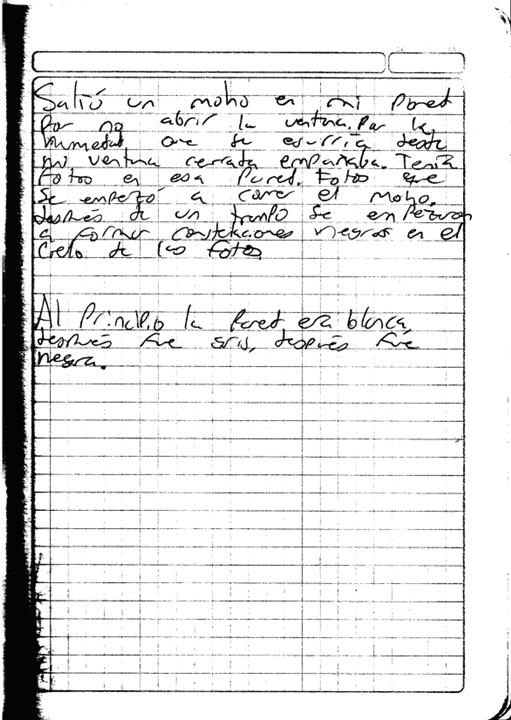 Salió un moho en mi pared
por no abrir la ventana. Por la
humedad que se escurría desde
mi ventana cerrada empañaba. Tenía
fotos en esa pared. Fotos que
se empezó a comer el moho.
después de un tiempo se empezaron
a formar constelaciones negras en el
cielo de las fotos
Al principio la pared era blanca,
después fue gris, después fue
negra.